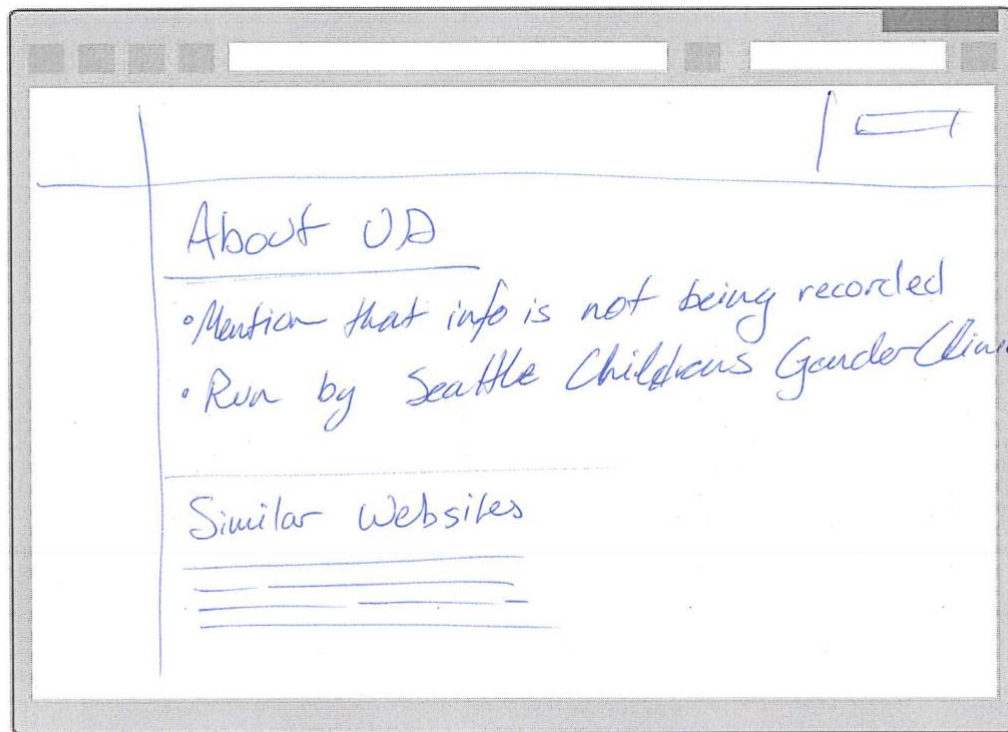 About US
• Mention that info is not being recorded
• Run by Seattle Childrens Gender Clinic
Similar Websites